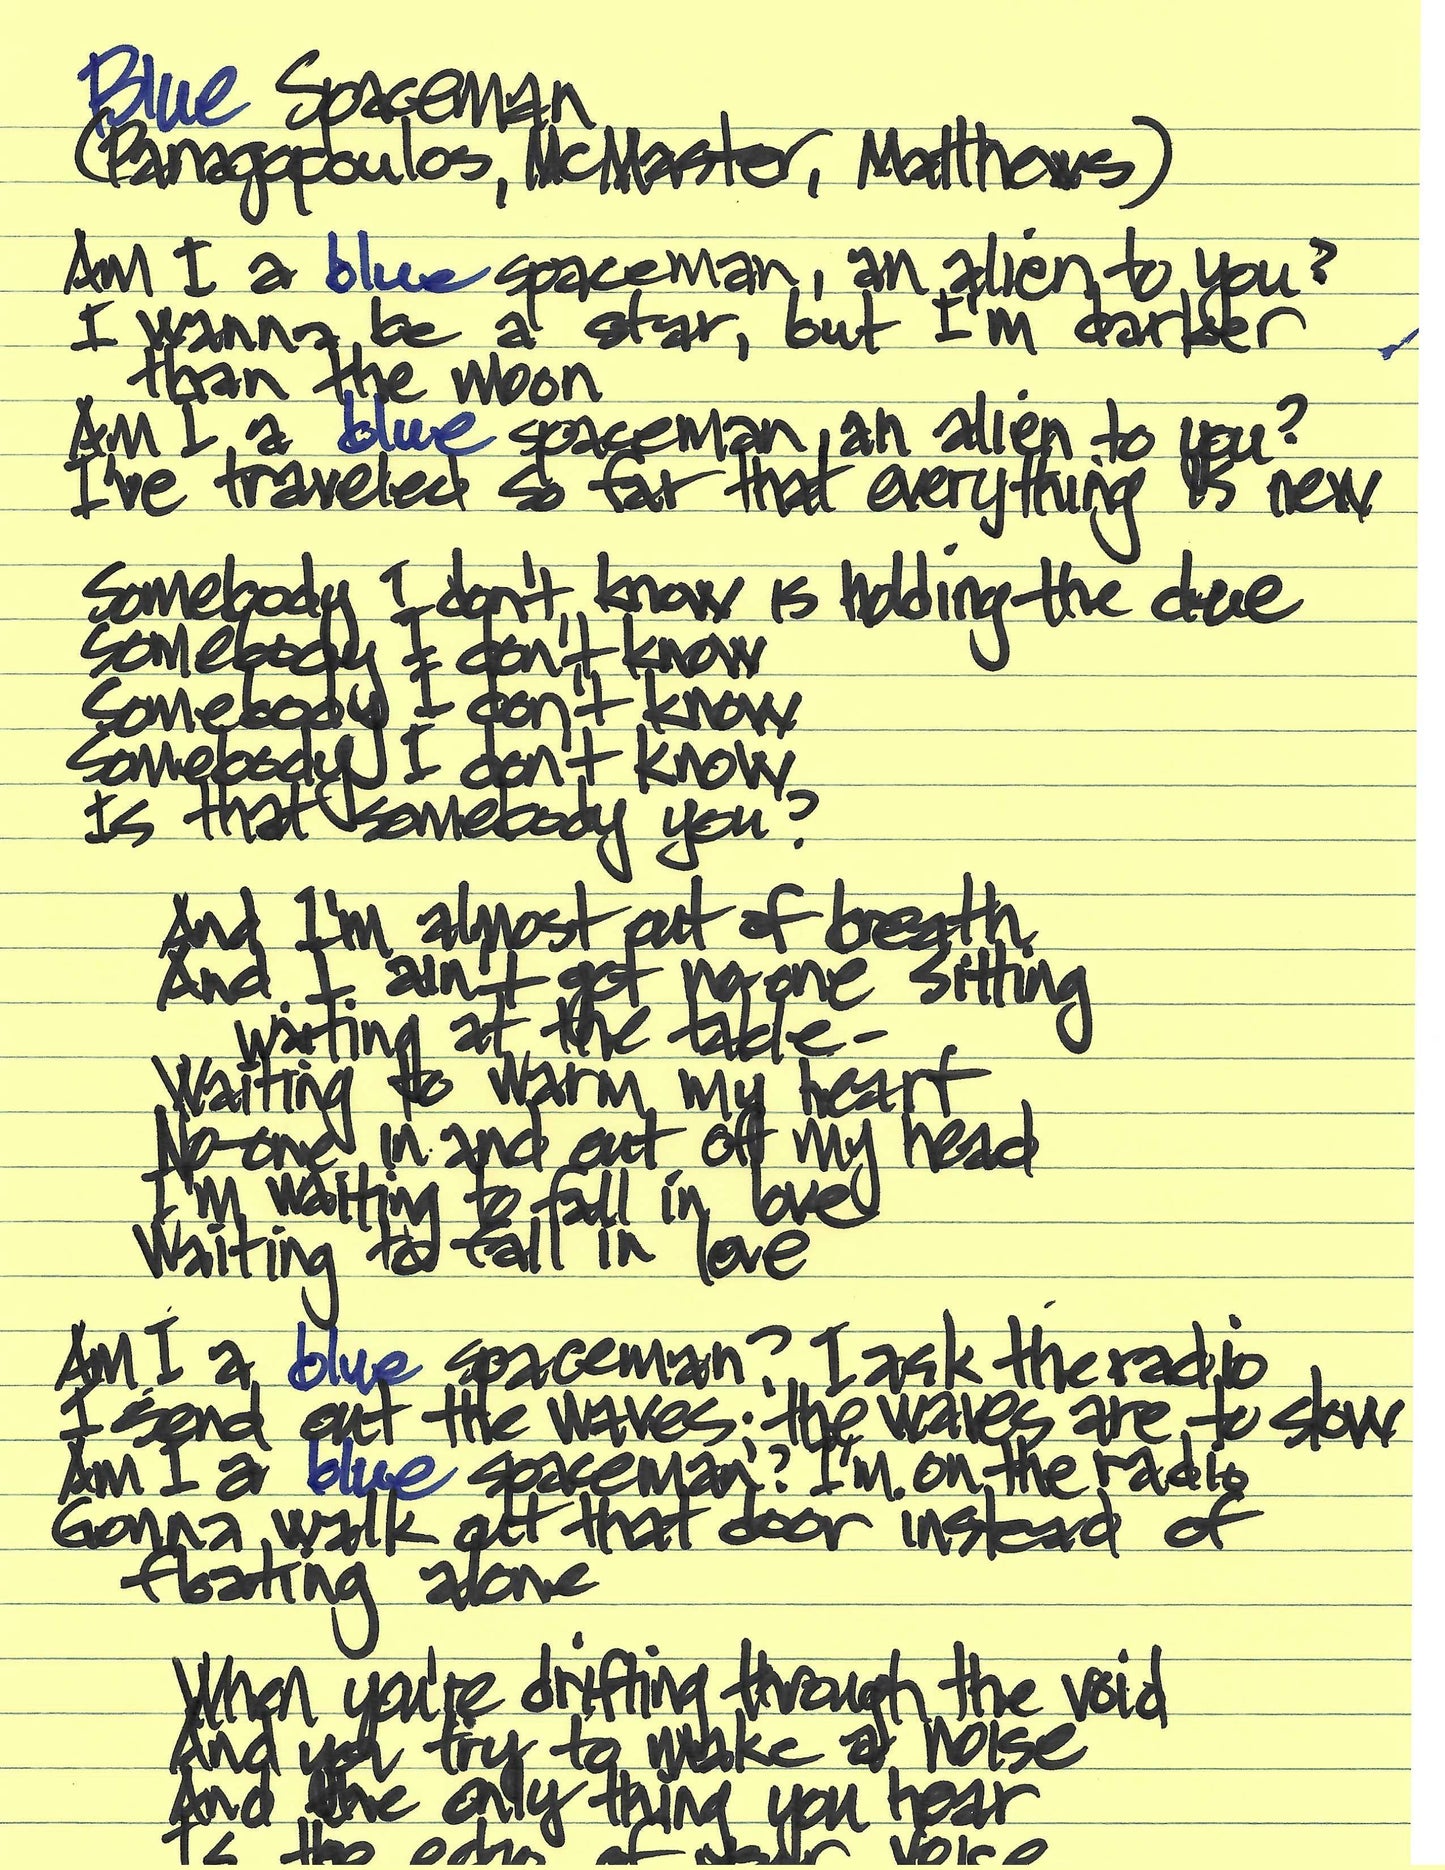 Blue Spaceman
(Panagopoulos, McMaster, Matthews)
Am I a blue spaceman, an alien to you?
I wanna be a star, but I'm darker
than the moon
Am I a blue spaceman, an alien to you?
I've traveled so far that everything is new
Somebody I don't know is holding the clue
Somebody I don't know
Somebody I don't know
Somebody I don't know
Is that somebody you?
And I'm almost out of breath
And I ain't got no-one sitting
waiting at the table-
Waiting to warm my heart
No-one in and out of my head
I'm waiting to fall in love
Waiting to fall in love
Am I a blue spaceman? I ask the radio
I send out the waves: the waves are to slow
Am I a blue spaceman? I'm on the radio
Gonna walk out that door instead of
floating alone
When you're drifting through the void
And you try to make a noise
And the only thing you hear
Is the echo of your voice